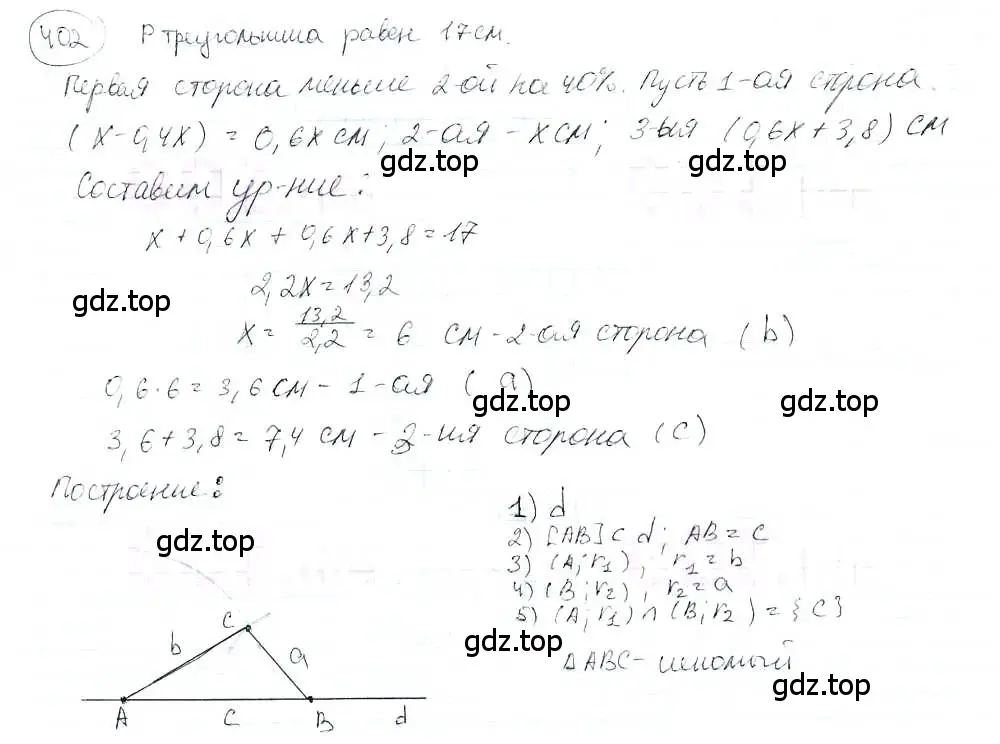 402 P треугольника равен 17 см.
Первая сторона меньше 2-ой на 40%. Пусть 1-ая сторона.
(x-0,4x) = 0,6x см; 2-ая - x см; 3-ья (0,6x+3,8) см
gdz.top gdz.top
Составим ур-ние:
x + 0,6x + 0,6x+3,8 = 17
2,2x = 13,2
gdz.top
x = 13,2/2,2 = 6 см - 2-ая сторона (b)
0,6·6 = 3,6 см - 1-ая (a)
gdz.top gdz.top
3,6+3,8 = 7,4 см - 3-ия сторона (c)
Построение:
1) d
2) [AB] c d; AB = c
gdz.top
3) (A; r1), r1 = b
4) (B; r2), r2 = a
5) (A; r1) ∩ (B; r2) = {C}
C
gdz.top
b a
ΔABC - искомый
gdz.top
A C B d